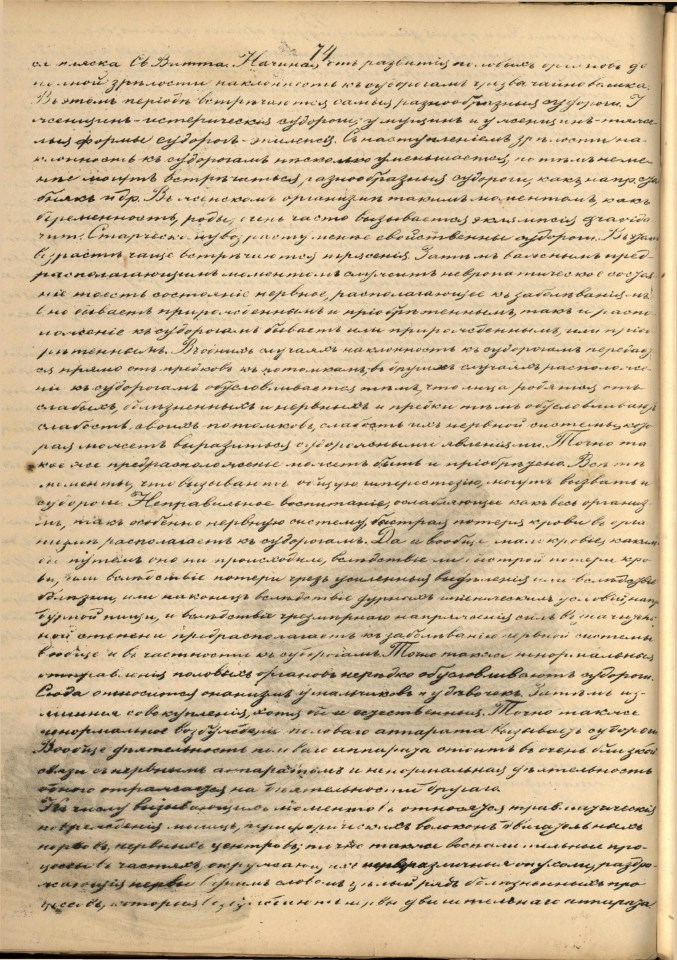 74
ся пляска Св. Витта. Начиная отъ развитія половыхъ органовъ до
полной зрѣлости наклонность къ судорогамъ чрезвычайно велика.
Въ этомъ періодѣ встрѣчаются самыя разнообразныя судороги. У
женщинъ - истерическія судороги; у мущинъ и у женщинъ - тяже-
лыя формы судорогъ - эпилепсія. Съ наступленіемъ зрѣлости на-
клонность къ судорогамъ нѣсколько уменьшается, но тѣмъ не ме-
нѣе могутъ встрѣчаться, разнообразныя судороги, какъ напр.
и др. Въ женскомъ организмѣ такимъ моментомъ, какъ
беременность, роды, очень часто вызывается эклямпсія
Старческому возрасту менѣе свойственны судороги. Въ
возрастѣ чаще встрѣчаются трясенія. Затѣмъ важнымъ пред-
располагающимъ моментомъ служитъ невропатическое состоя-
ніе то есть состояніе нервное, располагающее къ заболѣваніямъ
оно бываетъ прирожденнымъ и пріобрѣтеннымъ, такъ и распо-
ложеніе къ судорогамъ бываетъ или прирожденнымъ, или пріоб-
рѣтеннымъ. Въ однихъ случаяхъ наклонность къ судорогамъ передает-
ся прямо отъ предковъ къ потомкамъ, въ другихъ случаяхъ расположе-
ніе къ судорогамъ обусловливается тѣмъ, что лица родятся отъ
слабыхъ, болѣзненныхъ и нервныхъ и предки тѣмъ обусловливаютъ
слабость своихъ потомковъ, слабость ихъ нервной системы, кото-
рая можетъ выразиться судорожными явленіями. Точно та-
кое же предрасположеніе можетъ быть и пріобрѣтено. Всѣ тѣ
моменты, что вызываютъ общую гиперестезію, могутъ вызвать и
судороги. Неправильное воспитаніе, ослабляющее какъ весь организ-
мъ, такъ особенно нервную систему, быстрая потеря крови въ орга-
низмѣ располагаетъ къ судорогамъ. Да и вообще малокровіе, каким
бы путемъ оно ни происходило, вслѣдствіе ли быстрой потери кро-
ви, или вслѣдствіе потери чрезъ усиленныя выдѣленія или вслѣдствіе
болѣзни, или наконецъ вслѣдствіе дурныхъ гигіеническихъ условій, напр.
дурной пищи, и вслѣдствіе чрезмѣрнаго напряженія силъ въ значитель-
ной степени предрасполагаетъ къ заболѣванію нервной системы
вообще и въ частности къ судорогамъ. Точно также ненормальныя
отправленія половыхъ органовъ нерѣдко обусловливаютъ судороги.
Сюда относится онанизмъ у мальчиковъ и у дѣвочекъ. Затѣмъ из-
лишнія совокупленія, хотя бы и естественныя. Точно также
ненормальное возбужденіе половаго аппарата вызываетъ судороги.
Вообще дѣятельность половаго аппарата стоитъ въ очень близкой
связи съ нервнымъ аппаратомъ и ненормальная дѣятельность
одного отражается на дѣятельности другаго.
Къ числу вызывающихъ моментовъ относятся травматическія
поврежденія мышцъ, периферическихъ волоконъ двигательныхъ
нервовъ, нервныхъ центровъ; точно также воспалительные про-
цессы въ частяхъ, окружающихъ нервы, различныя опухоли, раздра-
жающія нервы, однимъ словомъ цѣлый рядъ болѣзненныхъ про-
цессовъ, которые возбуждаютъ нервы двигательнаго аппарата